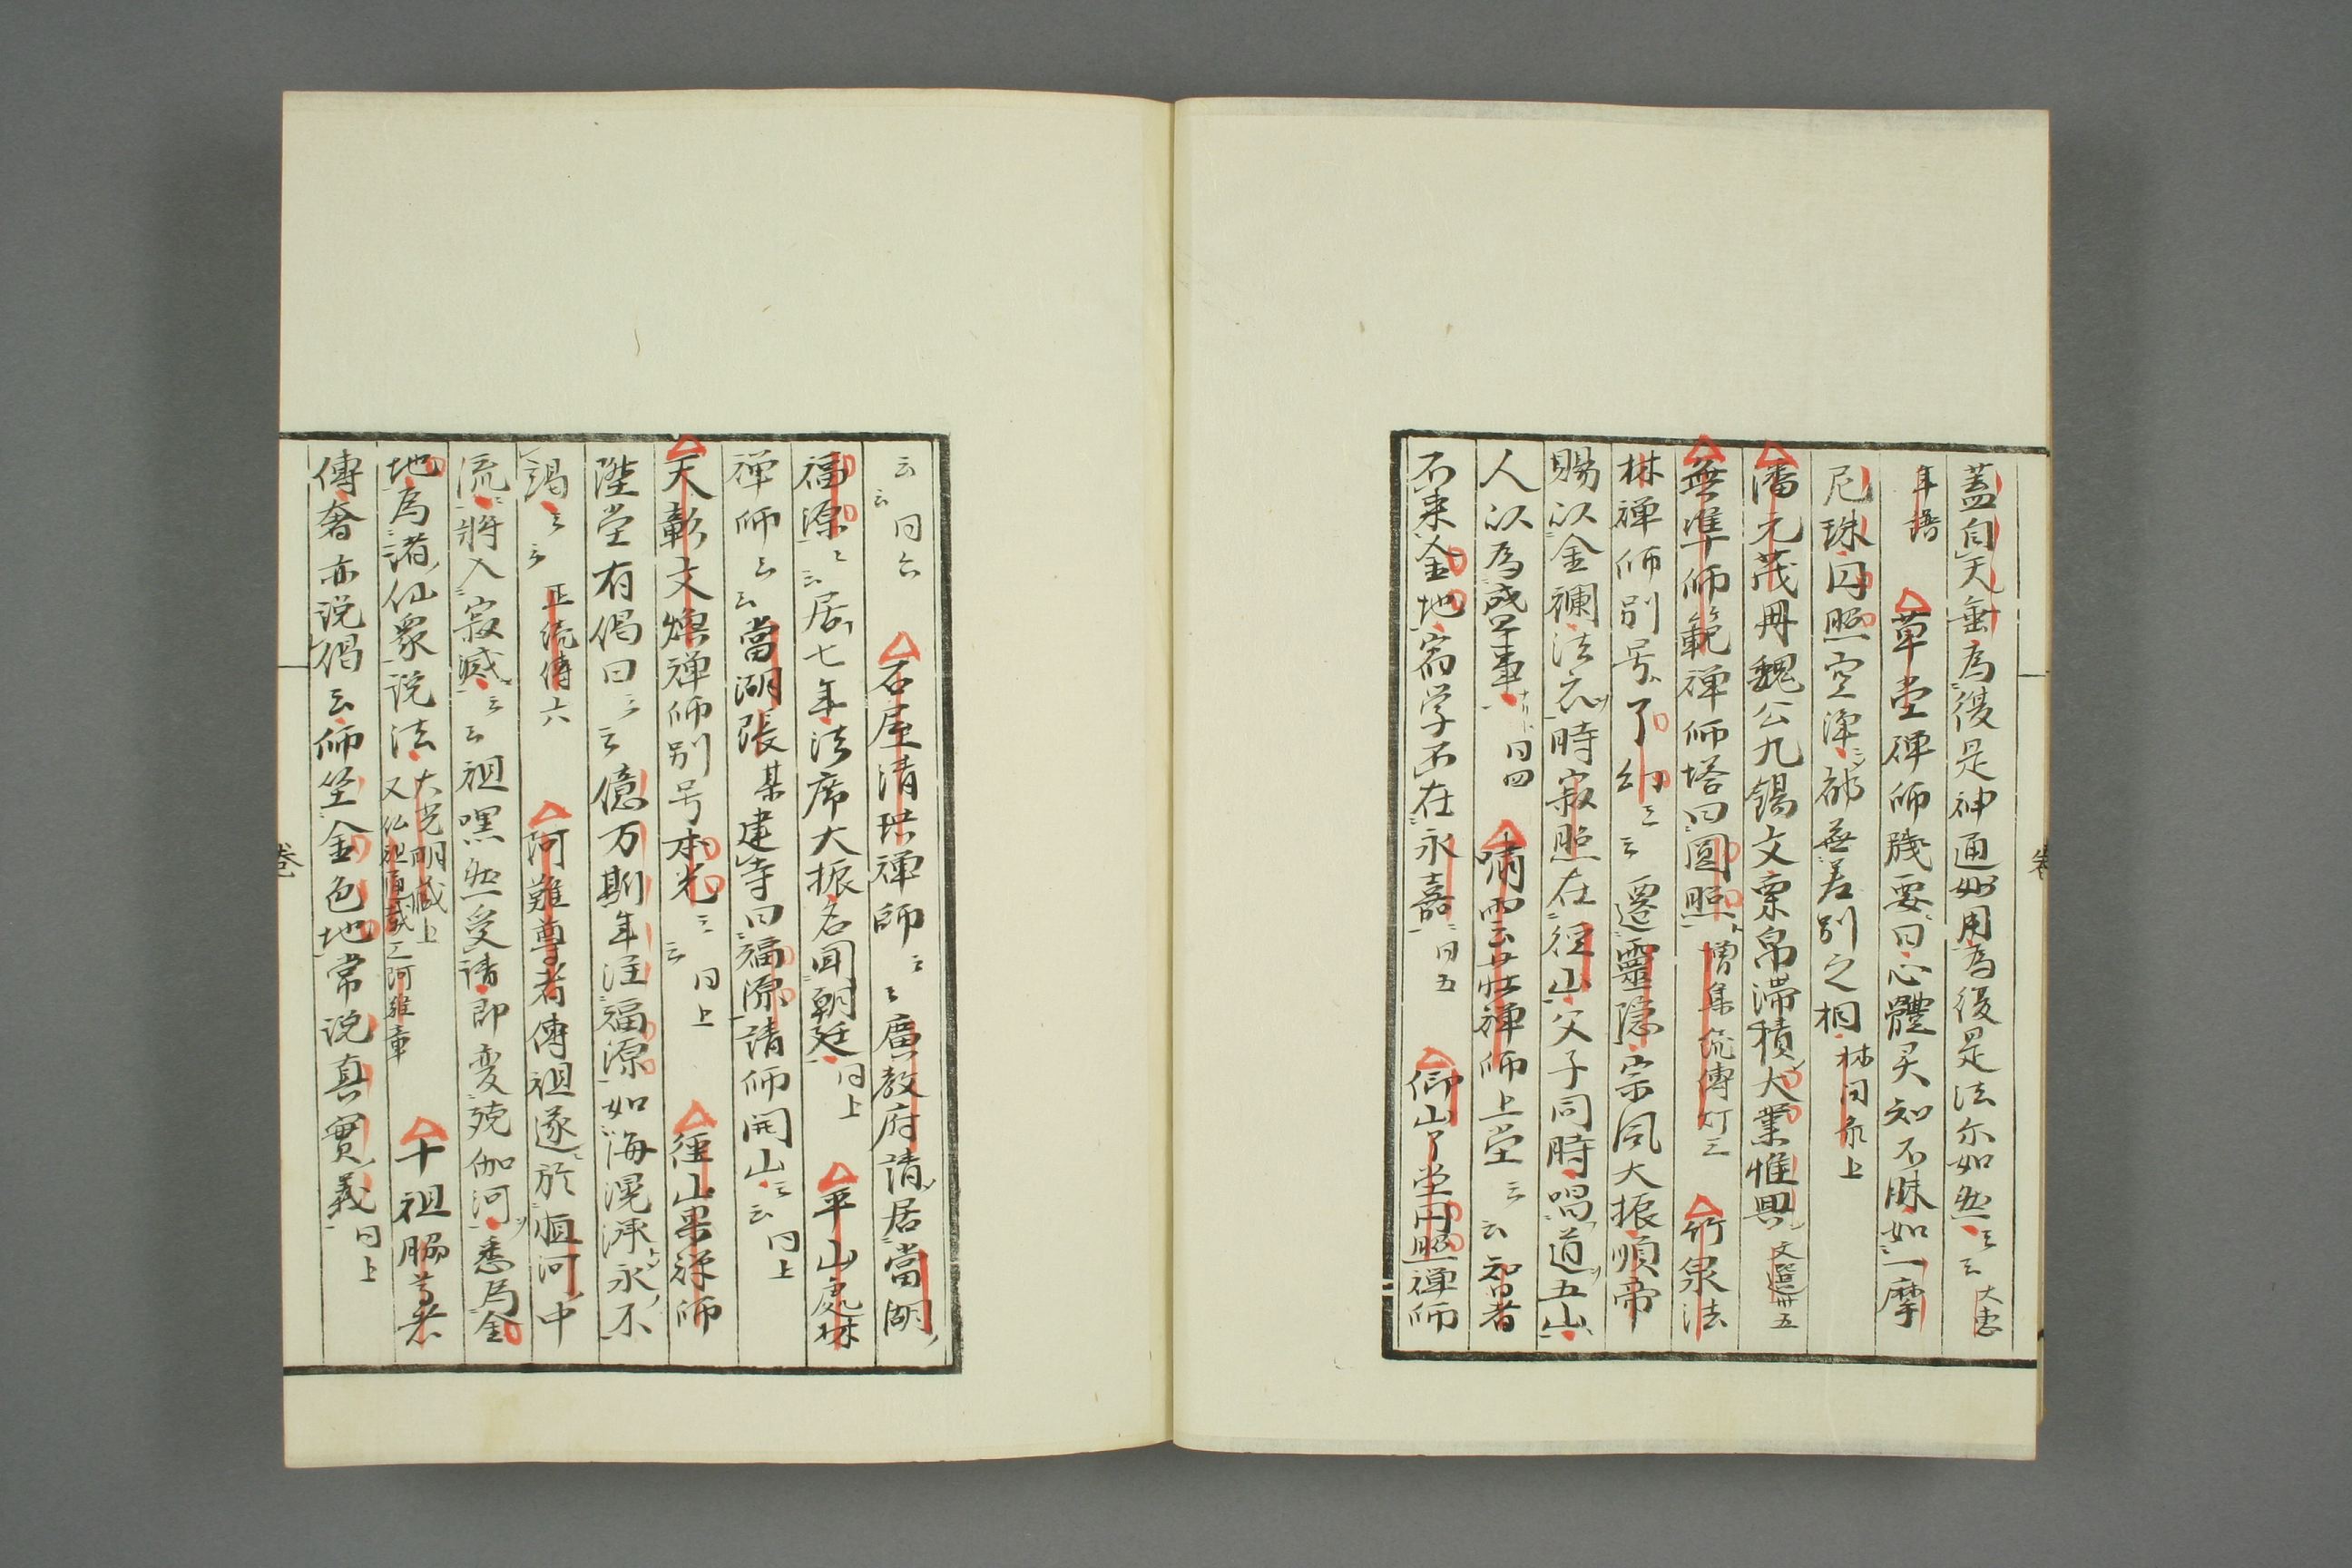 蓋自天垂為復是神通妙用為復是法尓如然云云大恵
年譜 草堂禅師牋要曰心體灵知不昧如一摩
尼珠円照空浄都無差別之相林間彔上
潘元茂册魏公九錫文粟帛滞積大業惟興文選卅五
無準師範禅師塔曰圓照増集続傳灯三 竹泉法
林禅師別号了幻云云遷靈隐宗風大振順帝
賜以金襴法衣時寂照在徑山父子同時唱道五山
人以為盛事同四 嘯雲荘禅師上堂云云智者
不来金地宿学不在永嘉同五 仰山了堂円照禅師
云云同六 石屋清珙禅師云云廣教府請居當湖
福源云云居七年法席大振名聞朝廷同上 平山處林
禅師云云當湖張某建寺曰福源請師開山云云同上
天彰文煥禅師別号本光云云同上 徑山杲禅師
陞堂有偈曰云云億万斯年注福源如海滉瀁永不
竭云云正続傳六 阿難尊者傳祖遂於恒河中
流将入寂滅云云祖嘿然受請即変殑伽河悉為金
地為諸仙衆説法大光明蔵上又仏祖直截上阿難章 十祖脇尊者
傳奢亦説偈云師坐金色地常説真實義同上
卷